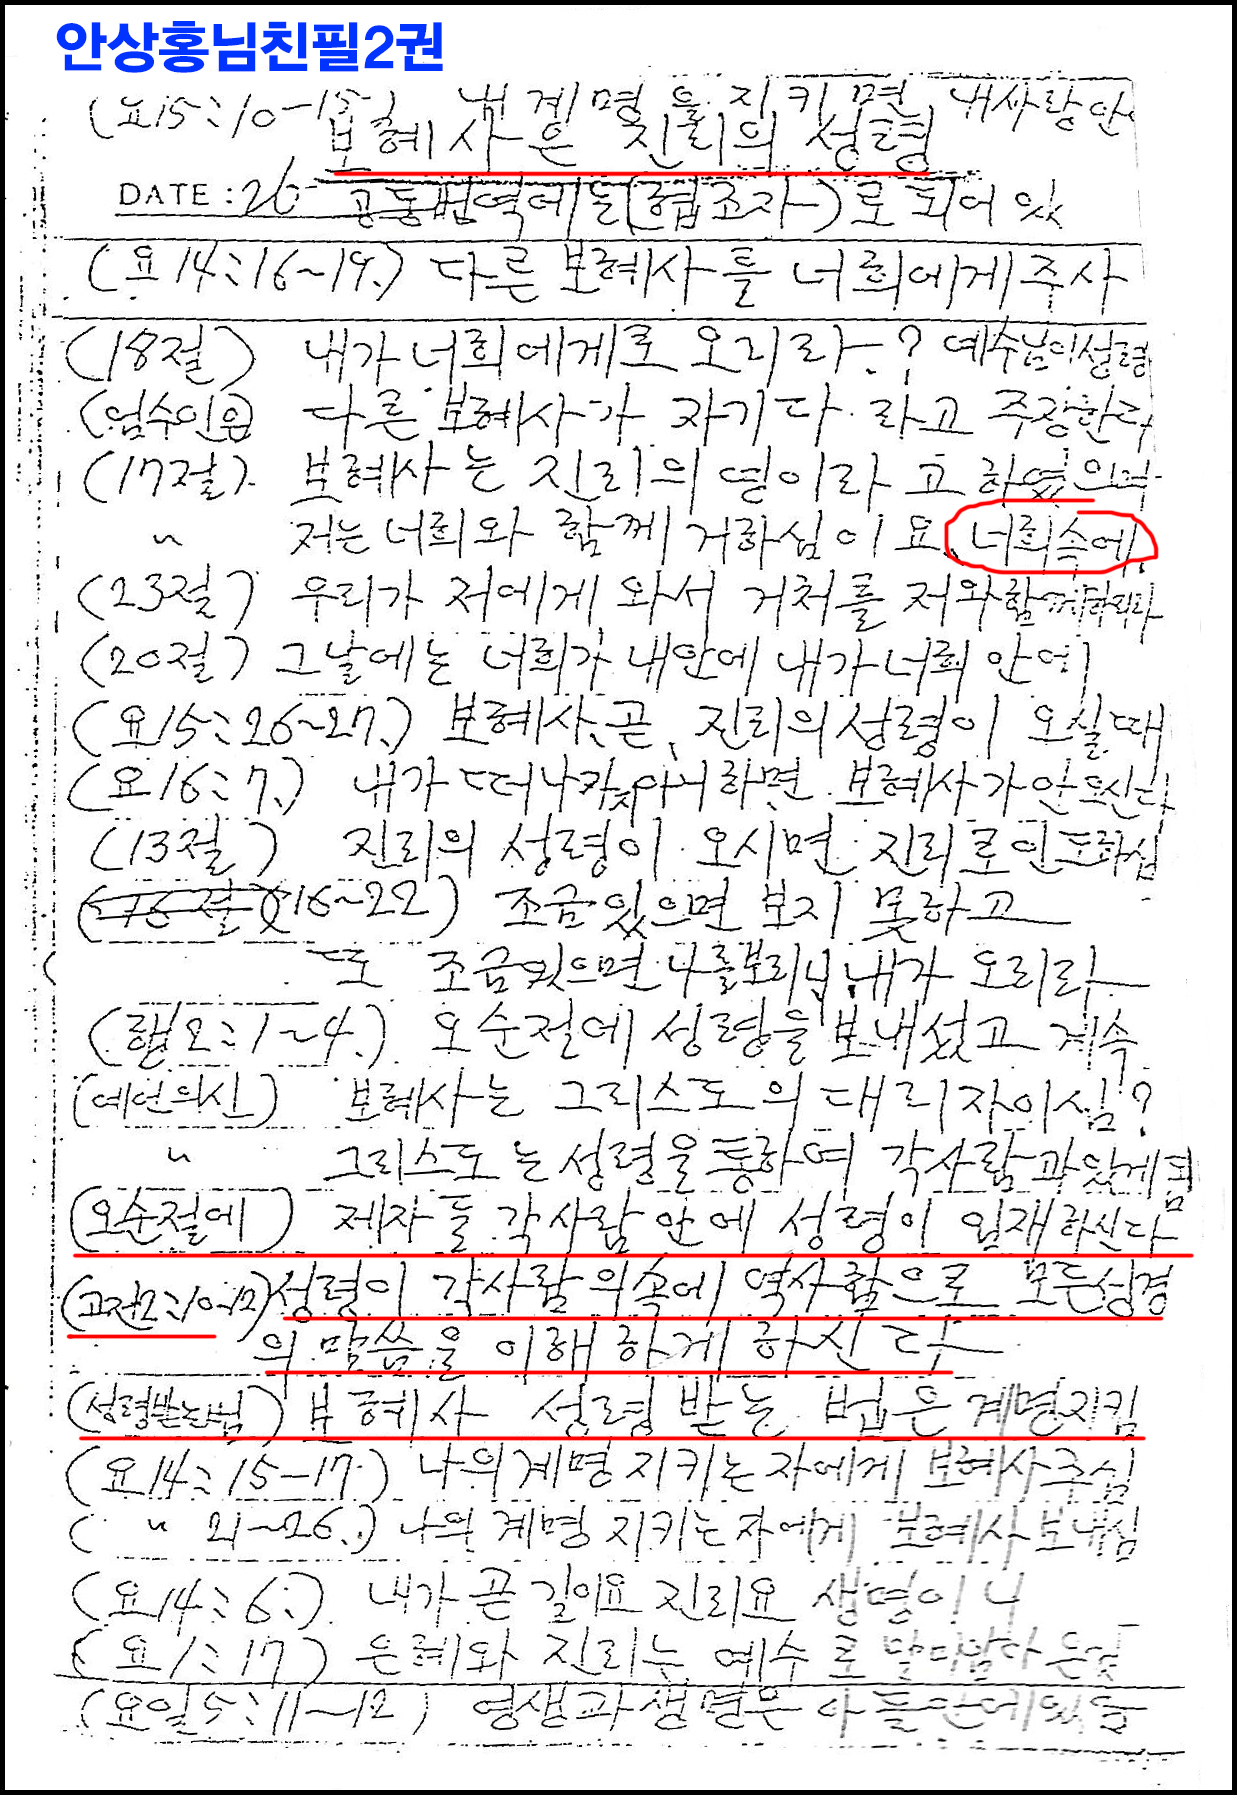 안상홍님친필2권
(요15:10-15) 내 계명을 지키면 내사랑안
보혜사은 진리의 성령
DATE: 26 공동번역에는 (협조자)로 되어 있
(요14:16~19.) 다른 보혜사를 너희에게 주사
(18절) 내가 너희에게로 오리라? 예수님이성령
(엄수인은 다른 보혜사가 자기다 라고 주장한다
(17절) 보혜사는 진리의 영이라고 하였으며
〃 저는 너희와 함께 거하심이요, 너희속에
(23절) 우리가 저에게 와서 거처를 저와함께하리라
(20절) 그날에는 너희가 내안에 내가너희 안에
(요15:26~27.) 보혜사, 곧, 진리의성령이 오실때
(요16:7.) 내가 떠나가지아니하면 보혜사가안오신다
(13절) 진리의 성령이 오시면 진리로인도하심
(16~22) 조금있으면 보지 못하고
또 조금있으면 나를보리니 내가 오리라
(행2:1~4.) 오순절에 성령을 보내셨고 계속
(예언의신) 보혜사는 그리스도의 대리자이심?
〃 그리스도는 성령을통하여 각사람과있게됨
(오순절에) 제자들 각사람 안에 성령이 임재하신다
(고전2:10-12) 성령이 각사람의속에 역사함으로 모든성경
의 말씀을 이해하게 하신다
(성령받는법) 보혜사 성령 받는 법은 계명지킴
(요14:15-17.) 나의계명 지키는자에게 보혜사주심
(〃 21~26.) 나의 계명 지키는자에게 보혜사보내심
(요14:6.) 내가 곧 길이요 진리요 생명이니
(요1:17) 은혜와 진리는 예수로 말미암아 온것
(요일5:11~12) 영생과생명은 아들안에있음